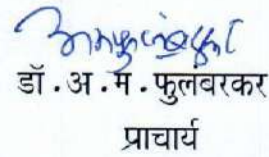 डॉ.अ.म.फुलबरकर
प्राचार्य